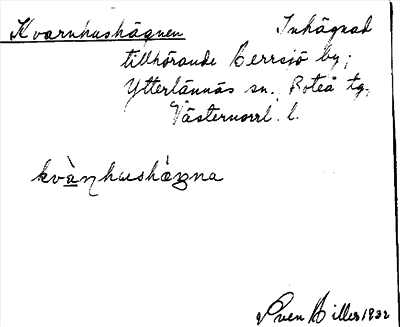 Kvarnhushägnen Inhägnad
tillhörande Berrsjö by,
Ytterlännäs sn. Boteå tg.
Västernorrl. l.
kvὰƞhusháᶇna
Sven Hiller 1932